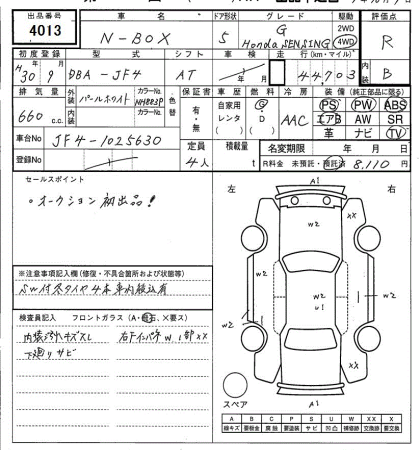 出品番号 車名 ドア形状 グレード 駆動 評価点
4013 N-BOX 5 G Honda SENSING 2WD 4WD R
初度登録 型式 シフト 車検 走行(km・マイル) 内装
H30 9 DBA-JF4 AT 年 月 44,703 B
排気量 外装 パールホワイト カラーNo. NH883P 色替 保証書 車歴 燃料 冷房 装備 (純正部品に限る)
660 c.c. 内装 カラーNo. 有・無 自家用 レンタ ( ) G・D ( ) AAC PS PW ABS
エアB AW SR
革 ナビ TV
車台No JF4-1025630 定員 4人 積載量 t 名変期限 年 月 日
登録No R料金 未預託・預託済 8,110円
セールスポイント
。オークション初出品!
※注意事項記入欄(修復・不具合箇所および状態等)
SW付冬タイヤ4本車内積込有
検査員記入 フロントガラス(A・飛石、×要ス)
内装汚れキズスレ 右下インパネW、1部XX
下廻りサビ
左 右
A1
W2 XX
W2
W2 W2 U1 W2
XX
スペア A1
A B C P S U W X XX
線キズ 要板金 腐蝕 要塗装 サビ 凹凸 補修跡 交換跡 要交換